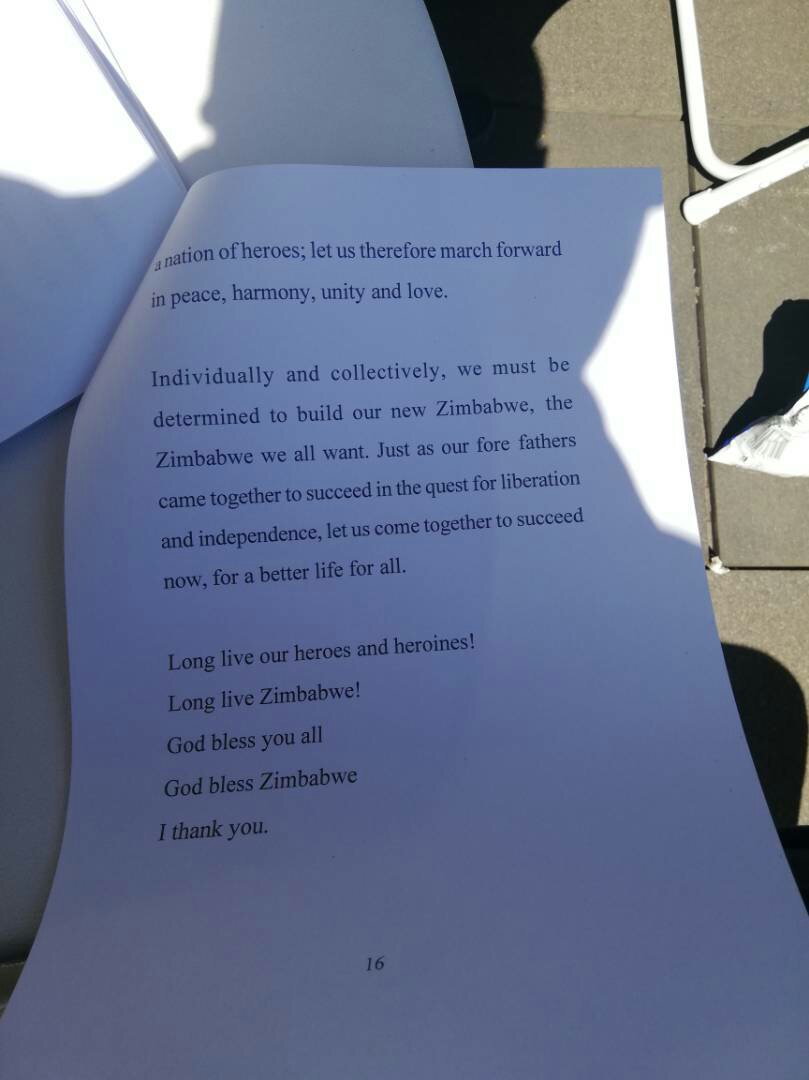 a nation of heroes; let us therefore march forward
in peace, harmony, unity and love.
Individually and collectively, we must be
determined to build our new Zimbabwe, the
Zimbabwe we all want. Just as our fore fathers
came together to succeed in the quest for liberation
and independence, let us come together to succeed
now, for a better life for all.
Long live our heroes and heroines!
Long live Zimbabwe!
God bless you all
God bless Zimbabwe
I thank you.
16